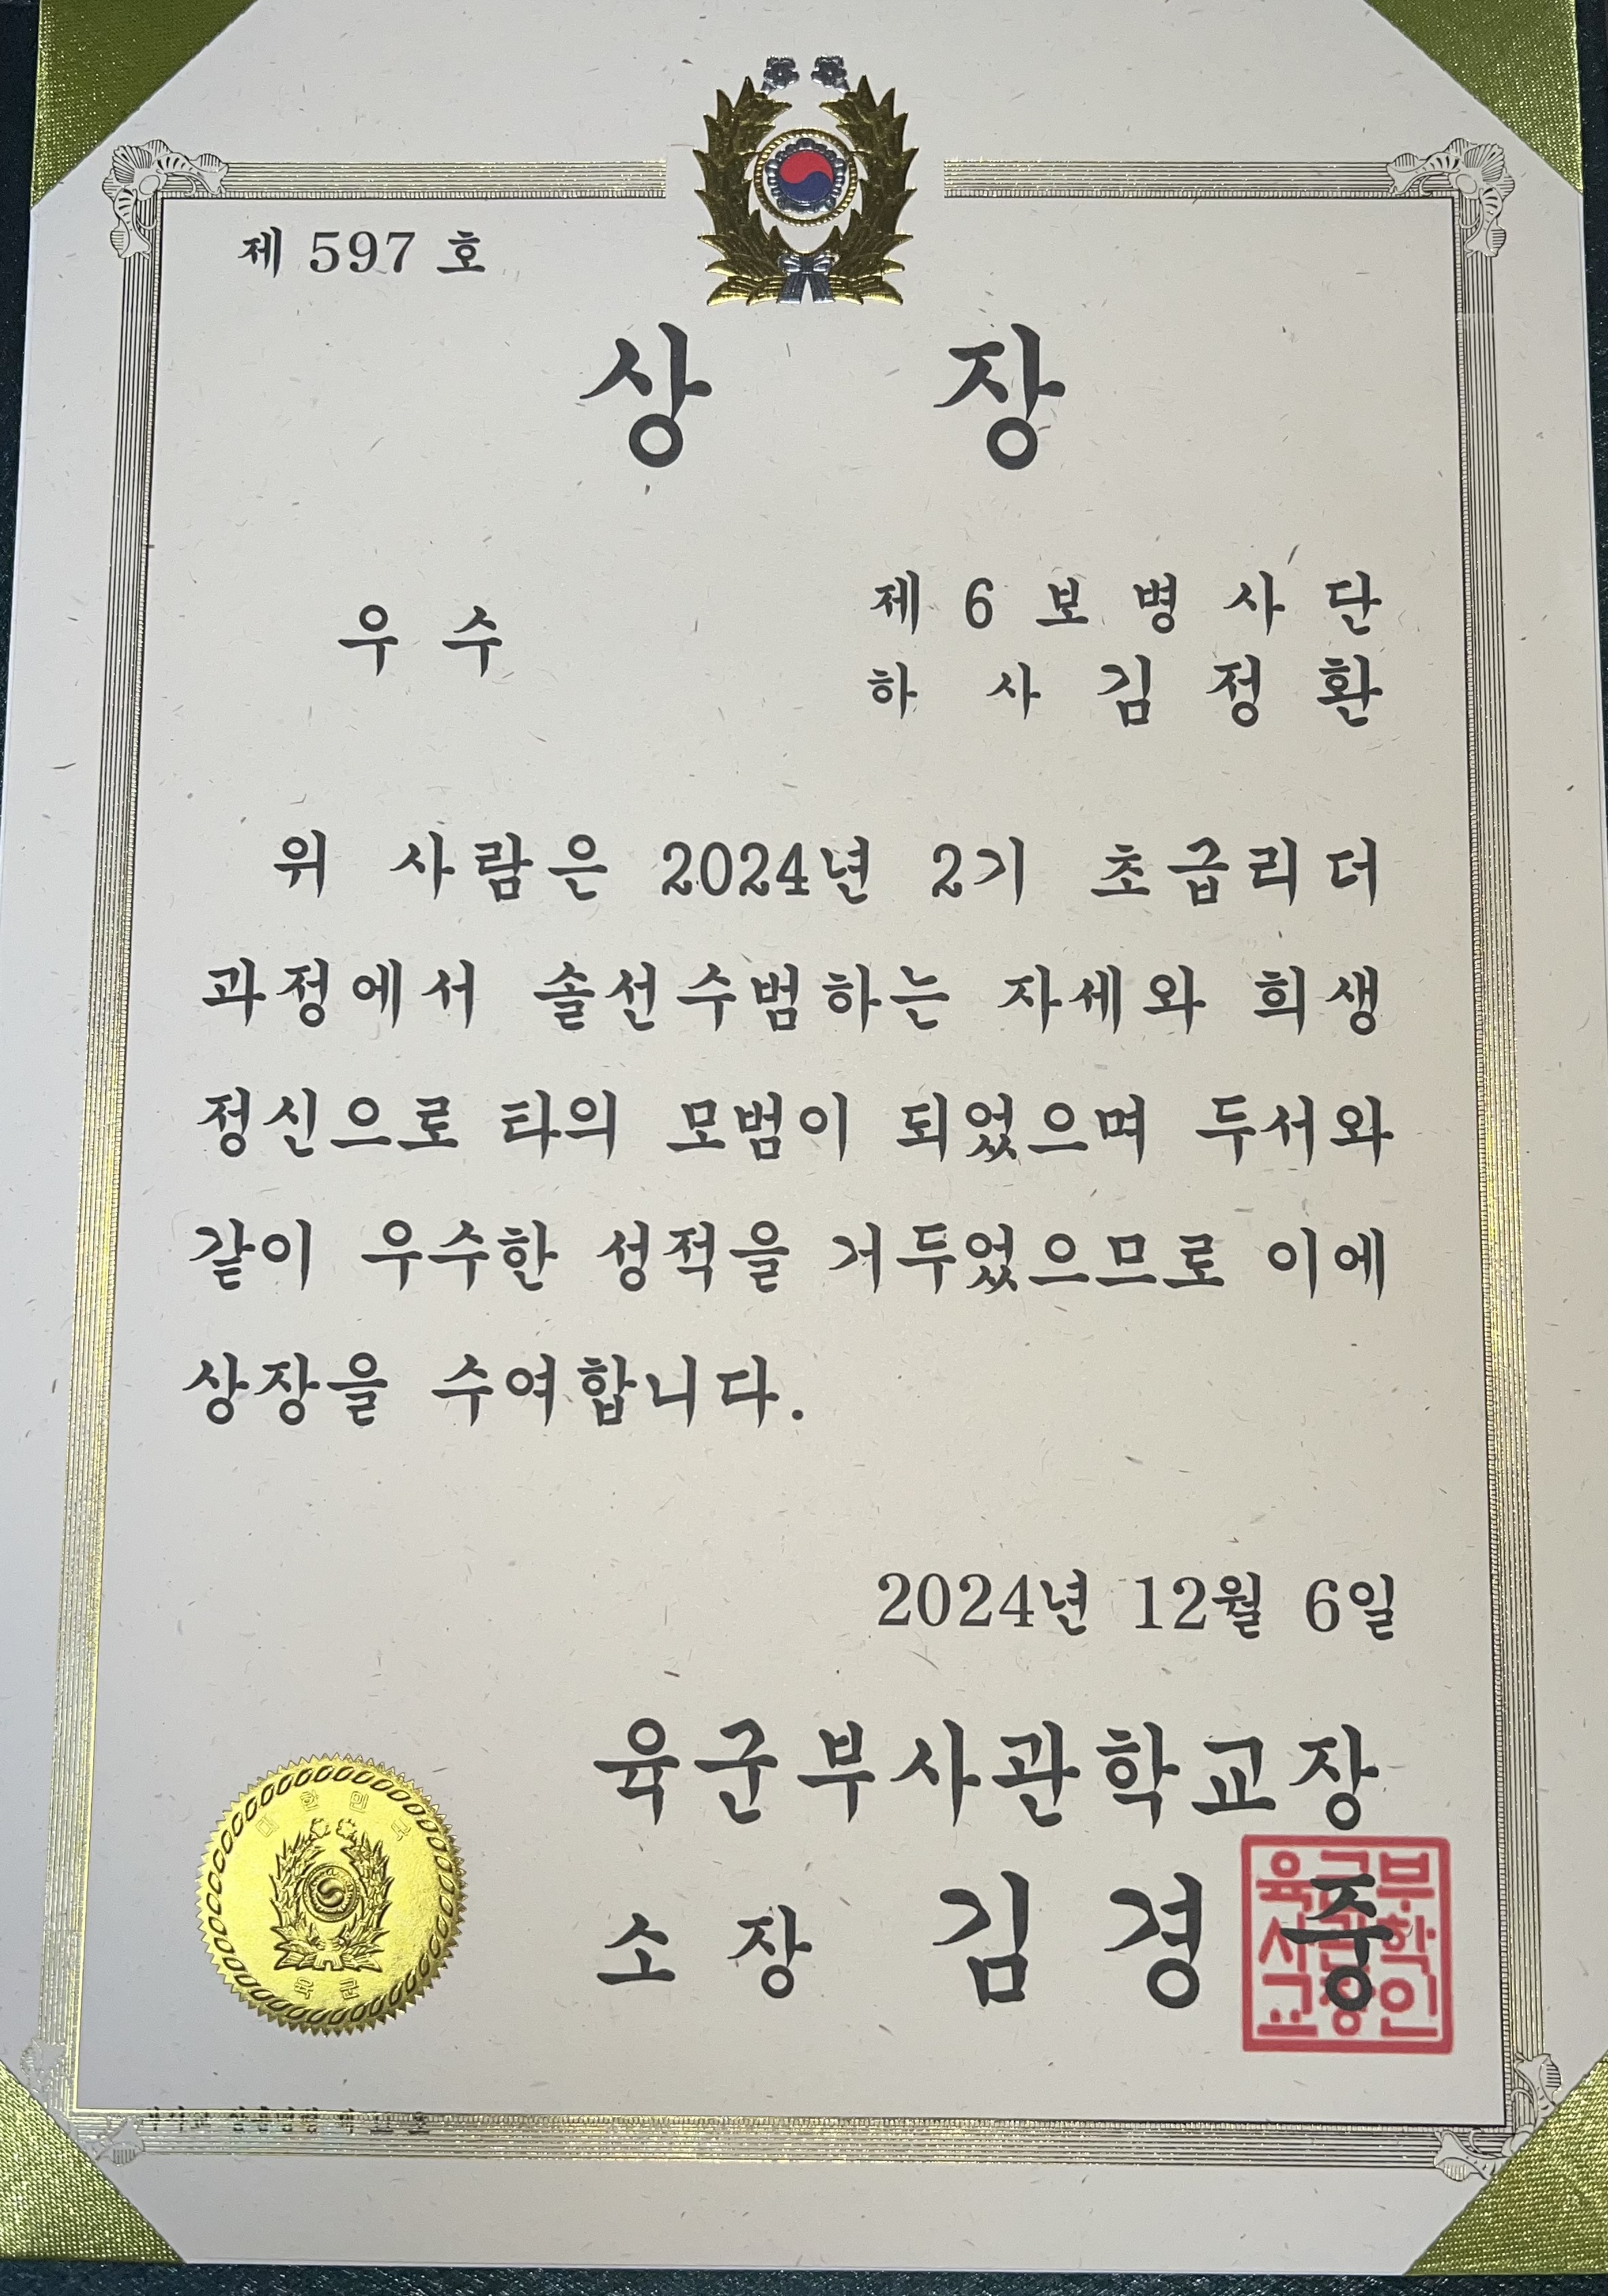 제 597 호
상 장
우 수
제 6 보 병 사 단
하 사 김 정 환
위 사람은 2024년 2기 초급리더
과정에서 솔선수범하는 자세와 희생
정신으로 타의 모범이 되었으며 두서와
같이 우수한 성적을 거두었으므로 이에
상장을 수여합니다.
2024년 12월 6일
육군부사관학교장
소 장 김 경 중
육군부
사관학
교장인
대한민국
육군